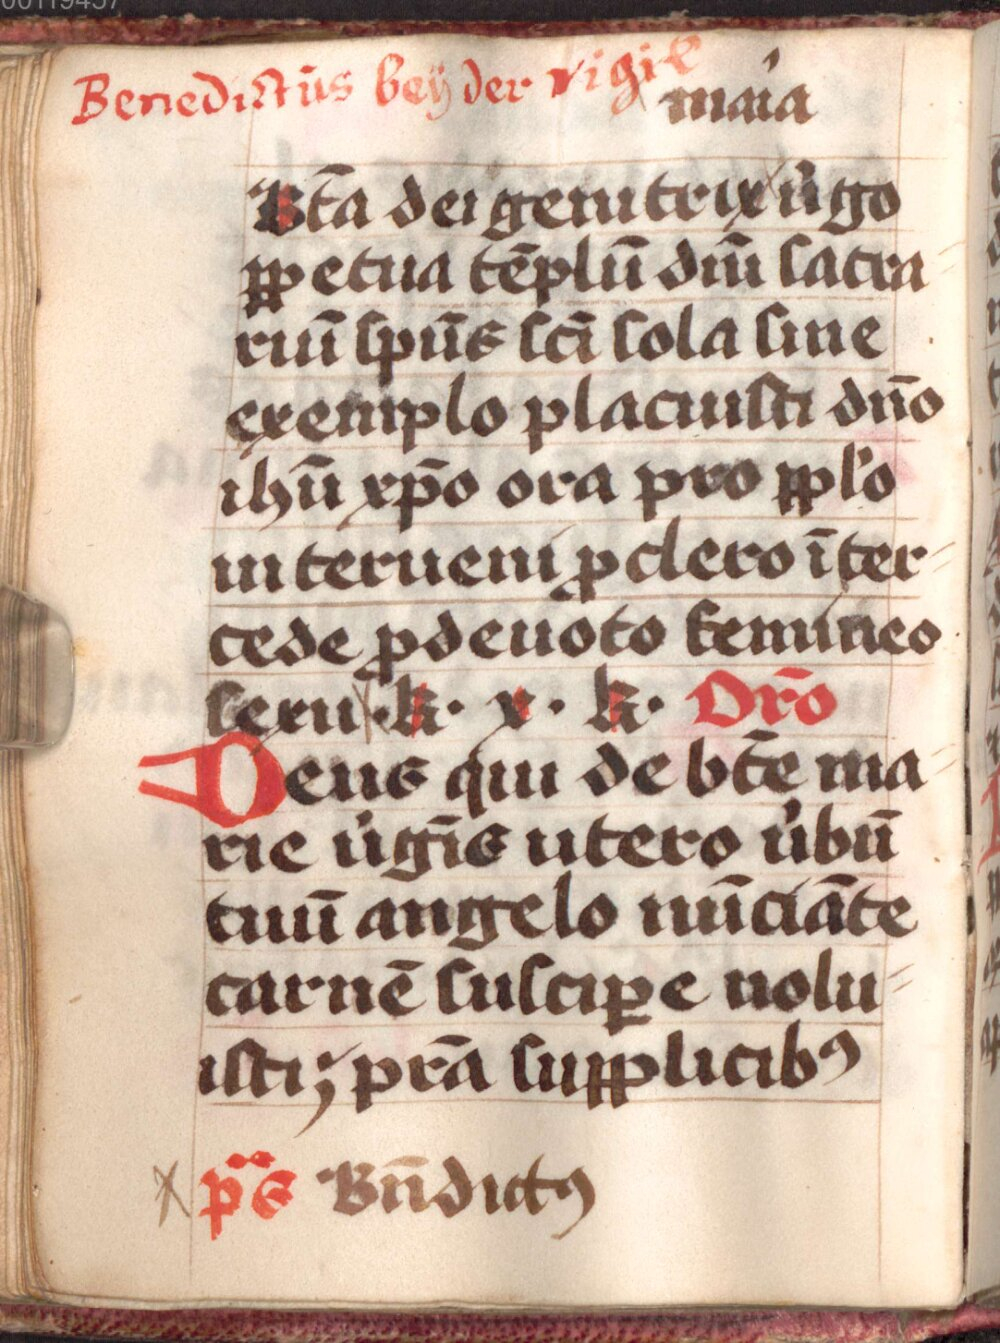 00119457
Benedictūs beÿ der vigil
maia
Bt̄a dei genitrix v̓go
ꝑpetua tēplū dn̄i sacra
riū sp̄us sc̄i sola sine
exemplo placuisti dn̄o
ihū xp̄o ora pro ppl̓o
interueni ꝓ clero īter
cede ꝓ deuoto femineo
sexu · k · x · k · Orō
Deus qui de bt̄e ma
rie v̓gīs utero v̓bū
tuū angelo nūciāte
carnē suscipe uolu
isti; pr̄a supplicibꝯ
p̄s Bn̄dictꝯ